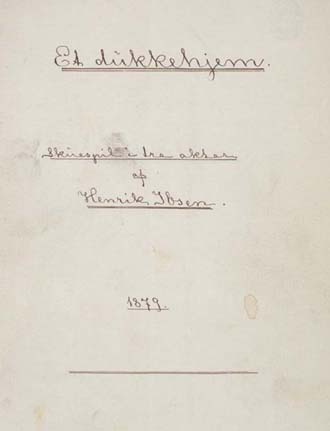 Et dükkehjem.
Skuespil i tre akter
af
Henrik Ibsen.
1879.